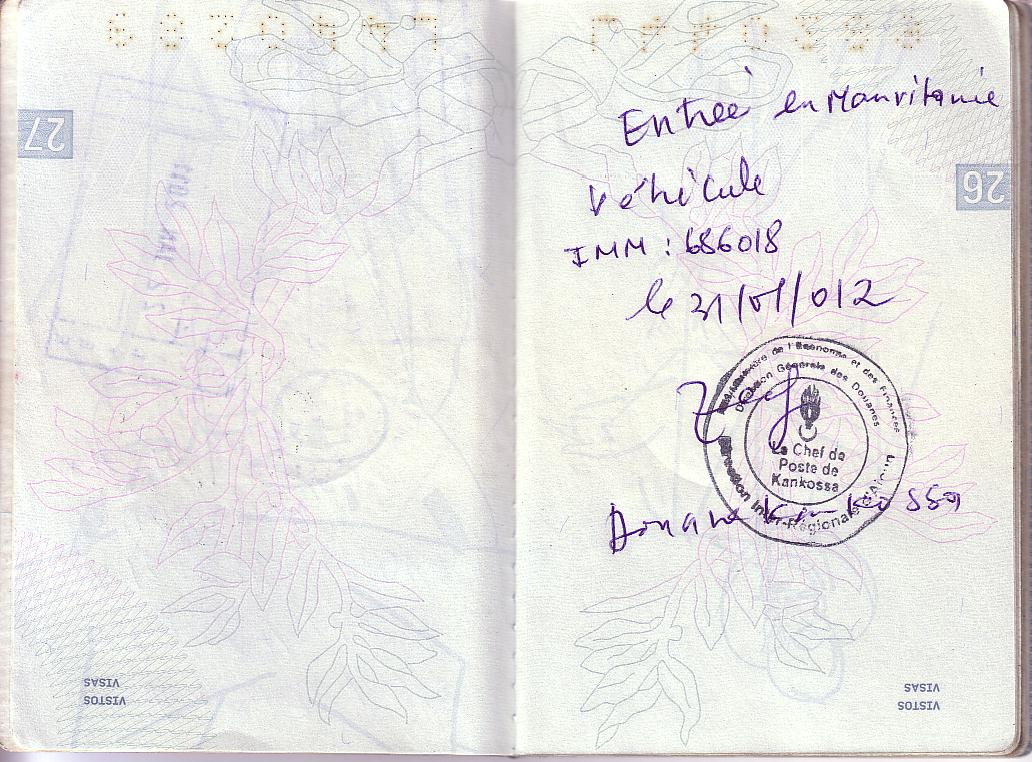 27
26
Entrée en Mauritanie
Véhicule
IMM : 686018
le 31/01/012
Ministère de l'Economie et des Finances
Direction Générale des Douanes
Le Chef de
Poste de
Kankossa
Direction Inter-Régionale d'Aioun
Douane Kankossa
VISAS
VISTOS
VISAS
VISTOS